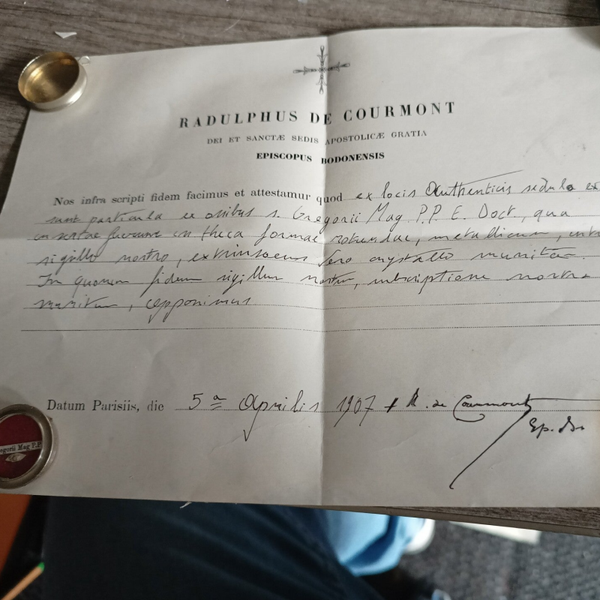 RADULPHUS DE COURMONT
DEI ET SANCTÆ SEDIS APOSTOLICÆ GRATIA
EPISCOPUS BODONENSIS
Nos infra scripti fidem facimus et attestamur quod ex locis Authenticis sedula
particula ex ossibus s. Gregorii Mag. P.P. E. Doct, qua
in theca formae rotundae, metallicae,
sigillo nostro, extrinsecus vero crystallo munita.
In quorum fidem sigillum nostrum,
apponimus
Datum Parisiis, die 5ª Aprilis 1907 + R. de Courmont
Ep.
egorii Mag P.P.